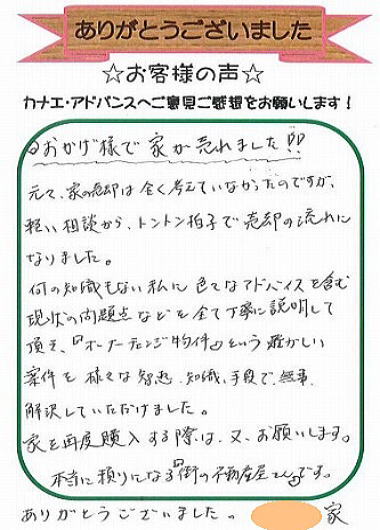 ありがとうございました
☆お客様の声☆
カナエ・アドバンスへご意見ご感想をお願いします！
おかげ様で家が売れました!!
元々、家の売却は全く考えていなかったのですが、
軽い相談から、トントン拍子で売却の流れに
なりました。
何の知識もない私に色々なアドバイスを含む
現状の問題点などを全て丁寧に説明して
頂き、『オーナーチェンジ物件』という難かしい
案件を様々な知恵、知識、手段で、無事、
解決していただけました。
家を再度購入する際は、又、お願いします。
本当に頼りになる『街の不動産屋さん』です。
ありがとうございました。 家